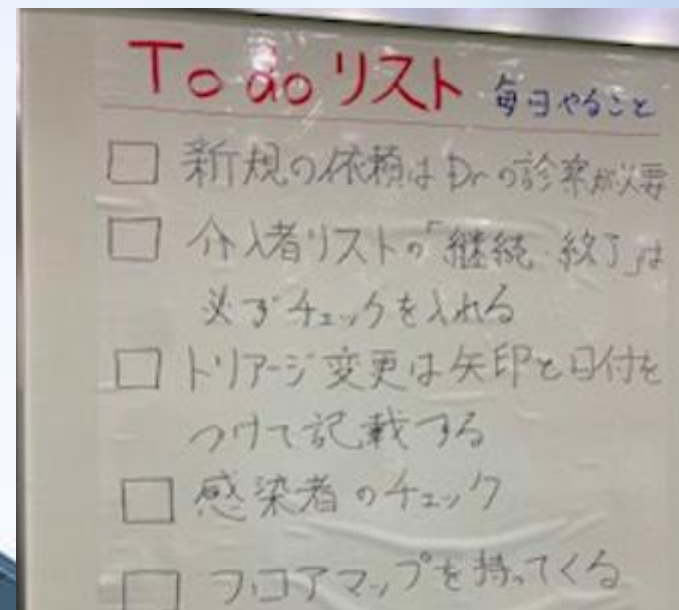 To do リスト 毎日やること
□ 新規の依頼はDrの診察が必要
□ 介入者リストの「継続・終了」は
必ずチェックを入れる
□ トリアージ変更は矢印と日付を
つけて記載する
□ 感染者のチェック
□ フロアマップを持ってくる